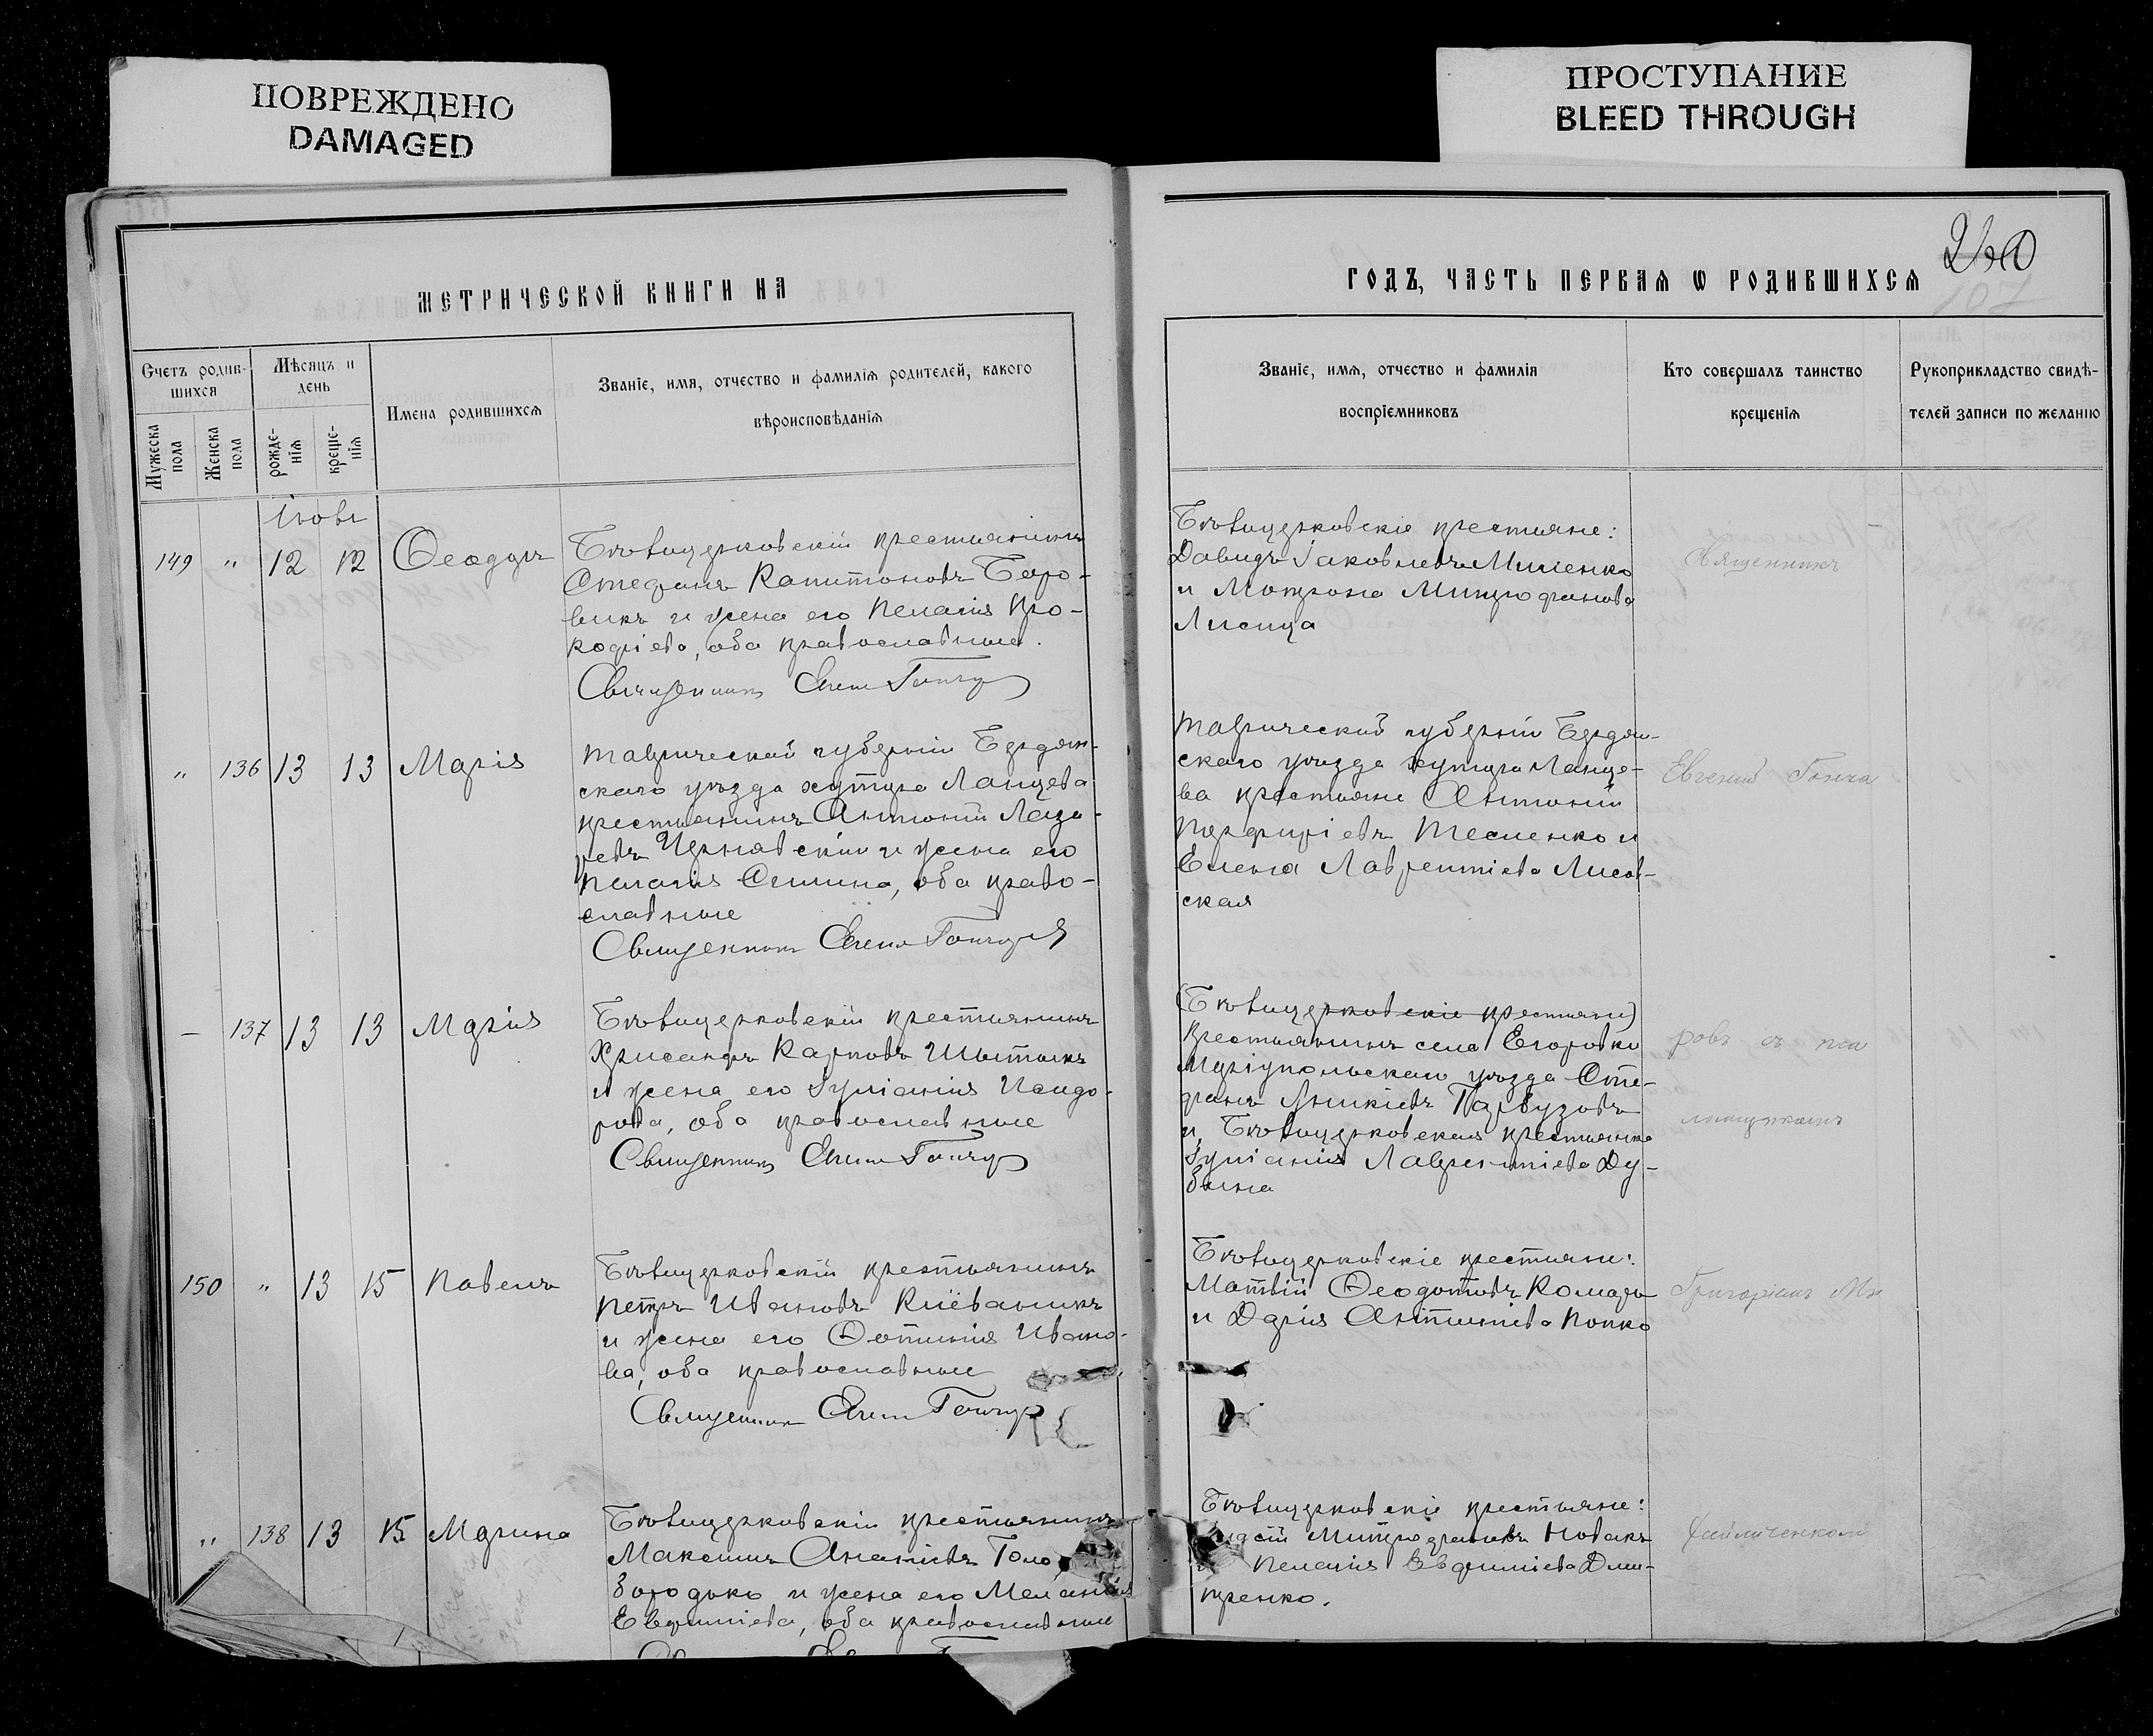 ПОВРЕЖДЕНО
DAMAGED
ПРОСТУПАНИЕ
BLEED THROUGH
МЕТРИЧЕСКОЙ КНИГИ НА
Счетъ родив-
шихся
Мужеска
пола
Женска
пола
Мѣсяцъ и
день
рожде-
нія
креще-
нія
Имена родившихся
Званіе, имя, отчество и фамилія родителей, какого
вѣроисповѣданія
Іюнь
149 " 12 12 Ѳеодоръ
Бѣлоцерковскій крестьянинъ
Стефанъ Капитоновъ Боро-
викъ и жена его Пелагія Про-
кофіева, оба православные.
Священникъ Евген Гончар
" 136 13 13 Марія
Таврической губерніи Бердян-
скаго уѣзда хутора Ланцева
крестьянинъ Антоній Лаза-
ревъ Чернявскій и жена его
Пелагія, оба право-
славные
Священникъ Евген Гончар
– 137 13 13 Марія
Бѣлоцерковскій крестьянинъ
Хрисанфъ Карповъ
и жена его Іуліанія Исидо-
рова, оба православные
Священникъ Евген Гончар
150 " 13 15 Павелъ
Бѣлоцерковскій крестьянинъ
Петръ Ивановъ
и жена его Фотинія Ивано-
ва, оба православные
Священник Евген Гончар
" 138 13 15 Марина
Бѣлоцерковскій крестьянинъ
Максимъ Ананіевъ Голо
бородько и жена его Меланія
Евфиміева, оба православные
ГОДЪ, ЧАСТЬ ПЕРВАЯ Ѡ РОДИВШИХСЯ
260
107
Званіе, имя, отчество и фамилія
воспріемниковъ
Кто совершалъ таинство
крещенія
Рукоприкладство свидѣ-
телей записи по желанію
Бѣлоцерковскіе крестьяне:
Давидъ Іаковлевъ
и Матрона Митрофанова
Лисица
Священникъ
Таврической губерніи Бердян-
скаго уѣзда хутора Ланце-
ва крестьяне Антоній
Порфиріевъ Тесленко и
Елена Лаврентіева Лисов-
ская
Евгений Гонча
(Бѣлоцерковскіе крестьяне)
Крестьянинъ села Егоровки
Маріупольскаго уѣзда Сте-
фанъ Гарбузовъ
и Бѣлоцерковская крестьянка
Іуліанія Лаврентіева Ду-
бина
ровъ съ пса
ломщикомъ
Бѣлоцерковскіе крестьяне:
Матвій Ѳеодотовъ Комаръ
и Дарія Попко
Григоріемъ Ми
Бѣлоцерковскіе крестьяне:
Митрофановъ Новакъ
Пелагія Евфиміева Дми-
тренко.
хайличенкомъ